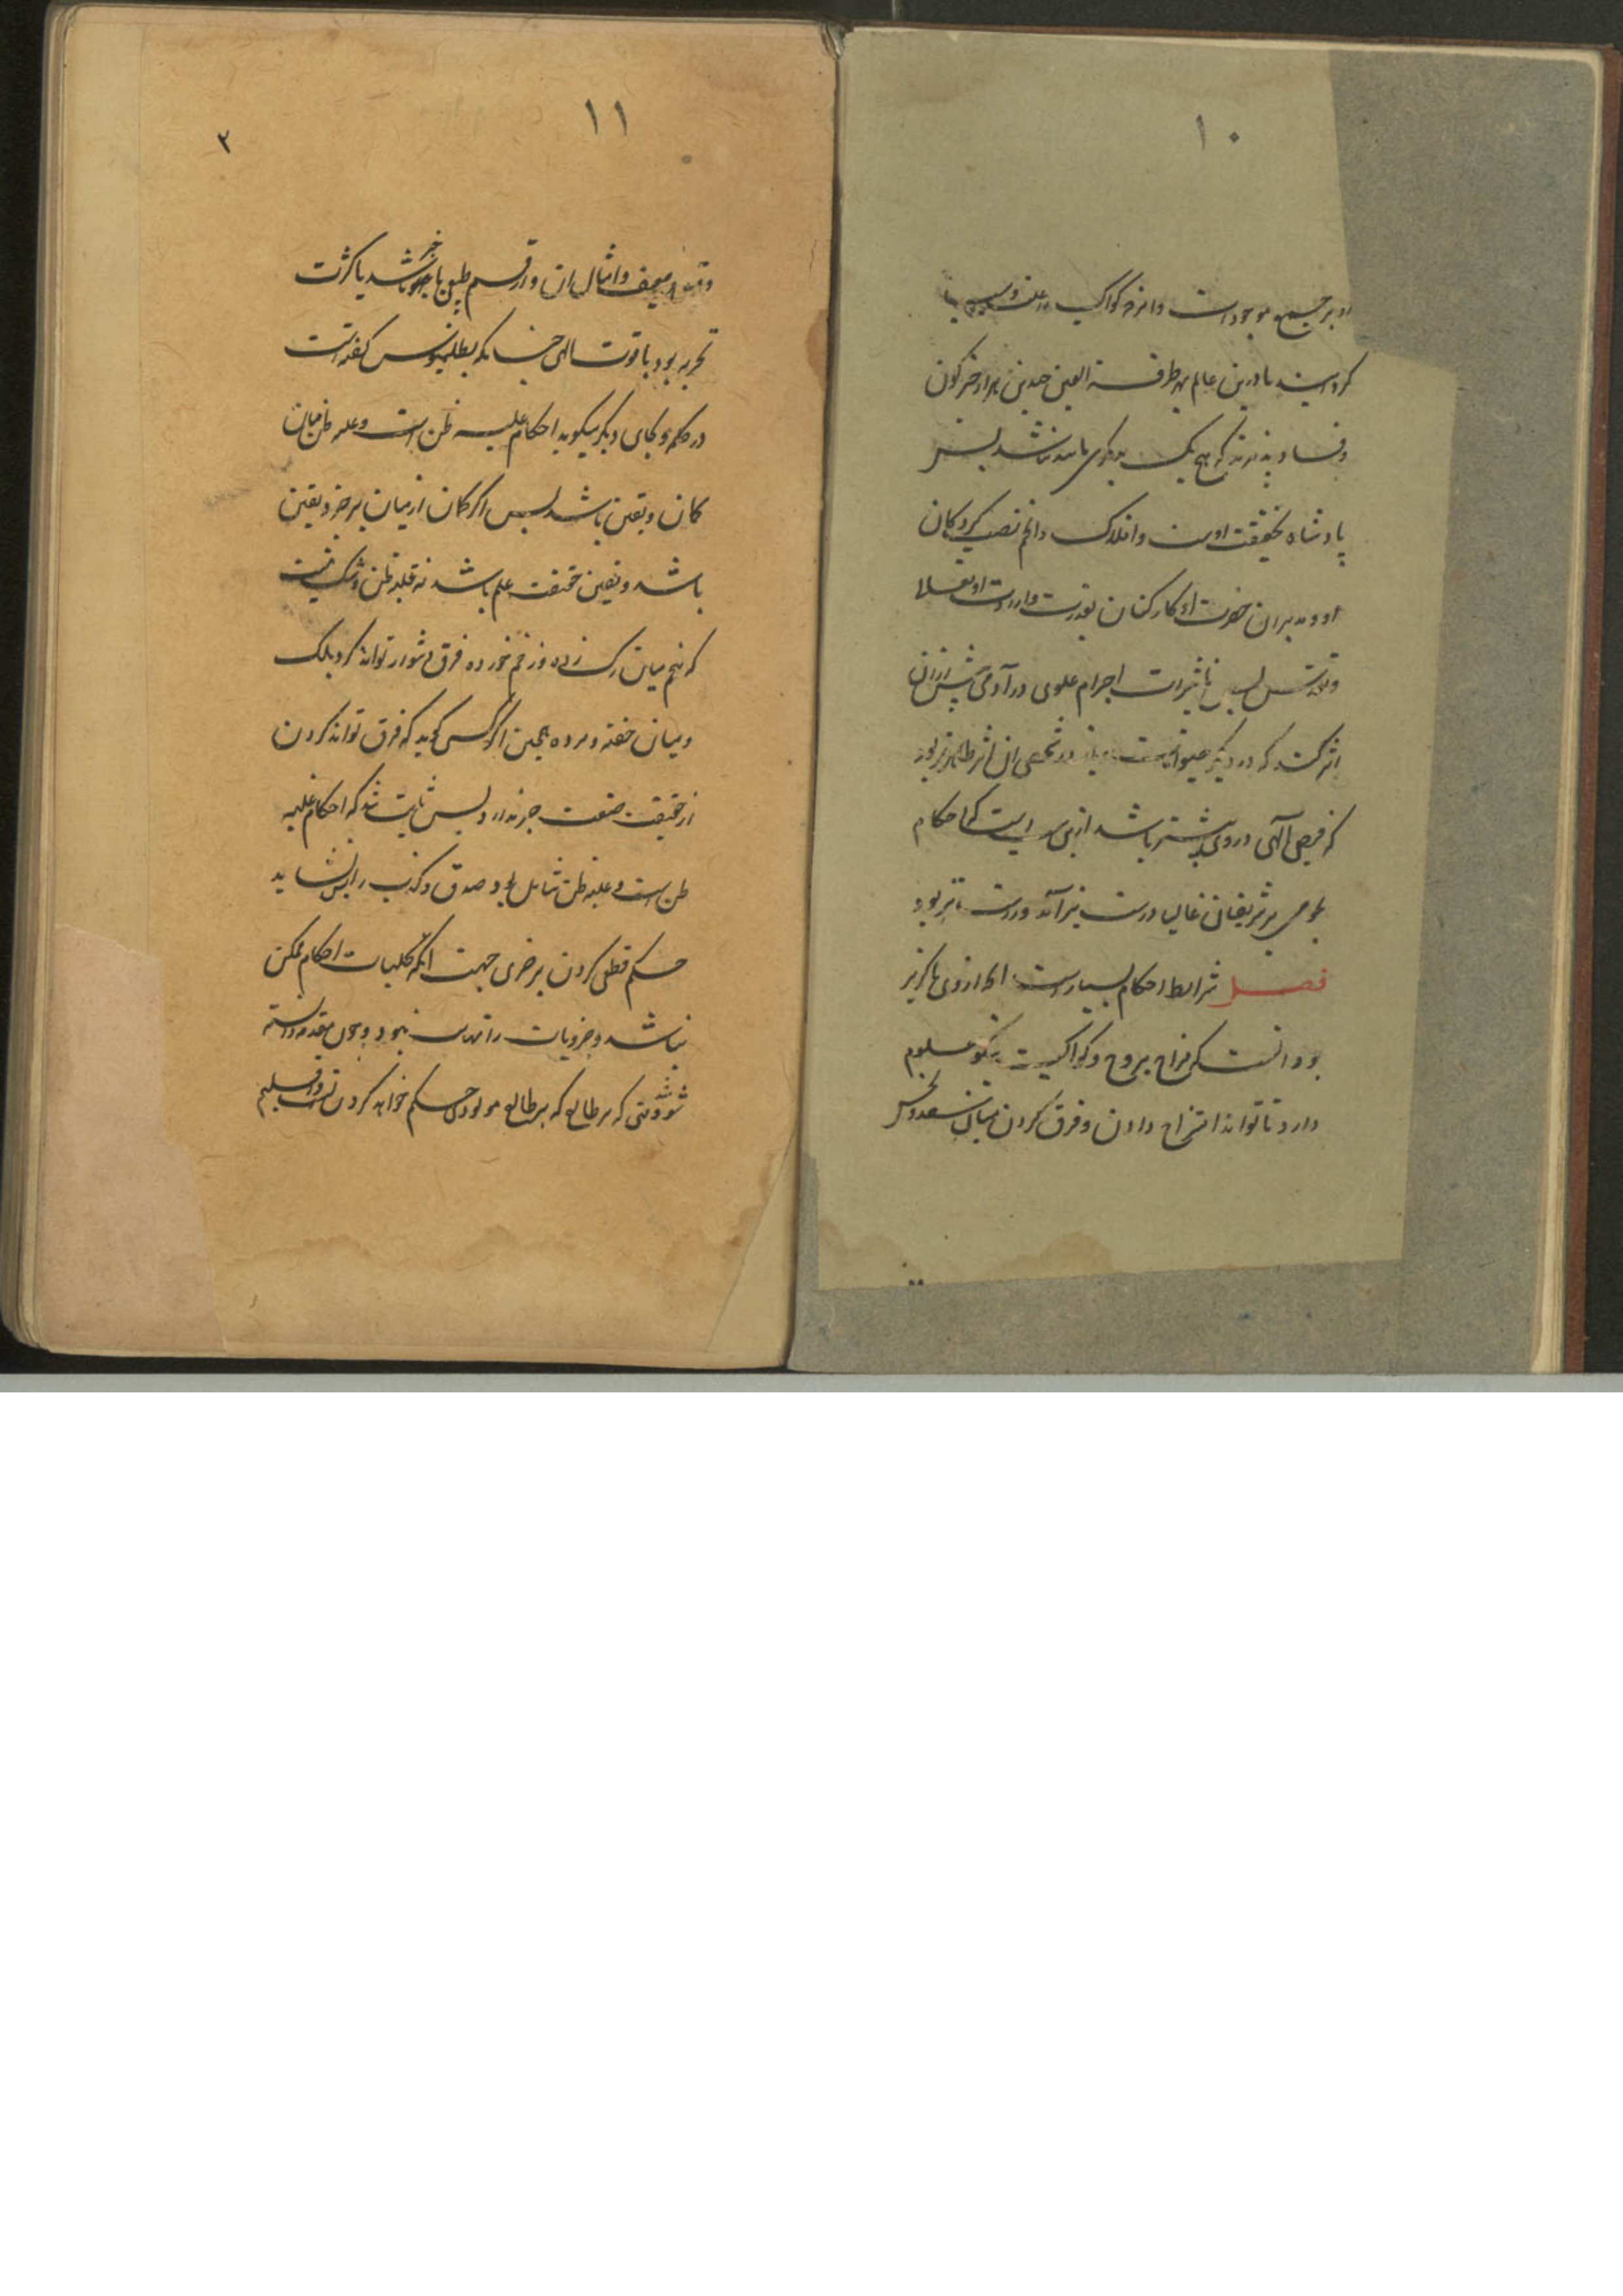 ۱۰
او بر جمیع موجودات و اثر کواکب را علت و سبب
کرده است تا درین عالم بهر طرفة العین چندین هزار چیز کون
و فساد پذیرند که هیچ یک بدیگری مانند نباشد پس
پادشاه بحقیقت اوست و افلاک و انجم نصب کردگان
او و مدبران حضرت او کارکنان بقدرت و ارادت او تعالی
و تقدس پس تاثیرات اجرام علوی در آدمی بیش از آن
اثر کند که در دیگر حیوانات و باز در شخصی آن اثر ظاهرتر بود
که فیض الهی در وی بیشتر باشد از این است که احکام
نجومی بر شریفان غالبا درست‌تر آید و راست‌تر بود
فصل شرایط احکام بسیارست آنچه از وی ناگزیر
بود آنست که مزاج بروج و کواکب نیکو معلوم
دارد تا تواند امتزاج دادن و فرق کردن میان سعد و نحس
۱۱
۳
و قوی و ضعیف و امثال آن و از قسم طبیعی با خبر باشد یا کثرت
تجربه بود با قوت الهی چنانکه بطلمیوس گفته است
در کلمه و بجای دیگر میگوید احکام غلبه ظن است و غلبه ظن میان
گمان و یقین باشد پس اگر گمان از میان برخیزد یقین
باشد و یقین حقیقت علم باشد نه غلبه ظن و شک نیست
که منجم میان رگ زده و زخم خورده فرق دشوار تواند کرد بلک
و میان خفته و مرده همچنین اگر کسی گوید که فرق تواند کردن
از حقیقت صنعت خبر ندارد پس ثابت شد که احکام غلبه
ظن است و غلبه ظن شامل بود صدق و کذب را پس نشاید
حکم قطعی کردن بر جزوی جهت آنکه کلیات احکام ممکن
نباشد و جزویات را نهایت نبود و چون مقدمه دانسته
شد وقتی که بر طالع که بر طالع مولودی حکم خواهد کردن و اقلیم